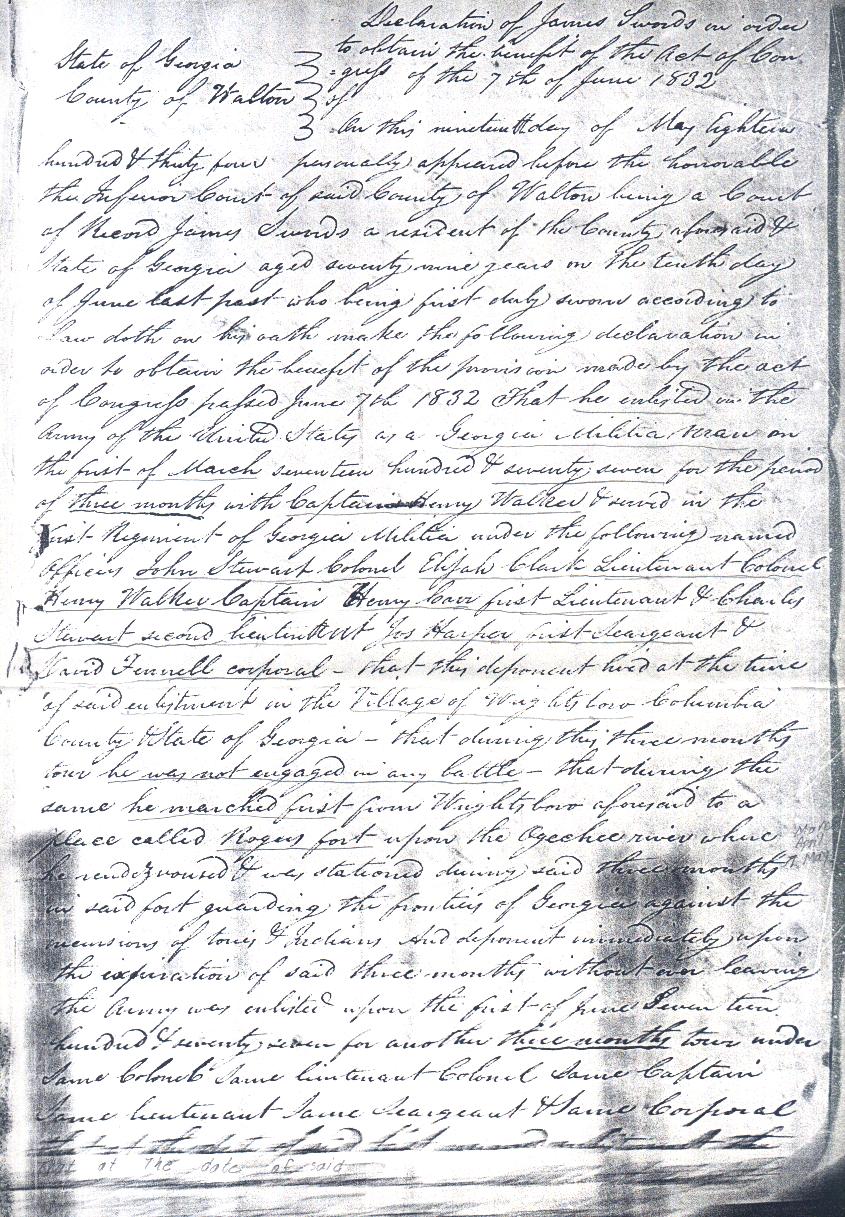 Declaration of James Swords in order
to obtain the benefit of the Act of Con
State of Georgia
=gress of the 7th of June 1832
County of Walton
of
On this nineteenth day of May Eighteen
hundred & thirty four personally appeared before the honorable
the Inferior Court of said County of Walton being a Court
of Record James Swords a resident of the County aforesaid &
State of Georgia aged seventy nine years on the tenth day
of June last past who being first duly sworn according to
Law doth on his oath make the following declaration in
order to obtain the benefit of the provision made by the act
of Congress passed June 7th 1832 That he enlisted in the
Army of the United States as a Georgia Militia man on
the first of March seventeen hundred & seventy seven for the period
of three months with Captain Henry Walker & served in the
first Regiment of Georgia Militia under the following named
Officers John Stewart Colonel Elijah Clark Lieutenant Colonel
Henry Walker Captain Henry Carr first Lieutenant & Charles
Stewart second lieutenant Jos Harper first Seargeant &
David Fennell corporal - that this deponent lived at the time
of said enlistment in the Village of Wrightsboro Columbia
County & State of Georgia - that during this three months
tour he was not engaged in any battle - that during the
same he marched first from Wrightsboro aforesaid to a
place called Rogers fort upon the Ogechee river where
he rendezvoused & was stationed during said three months
in said fort guarding the frontiers of Georgia against the
incursions of tories & Indians And deponent immediately upon
the expiration of said three months without ever leaving
the Army was enlisted upon the first of June Seven teen
hundred & seventy seven for another three months tour under
Same Colonel Same lieutenant Colonel Same Captain
Same lieutenant Same Seargeant & Same Corporal
that at the date of said last
that at the date of said